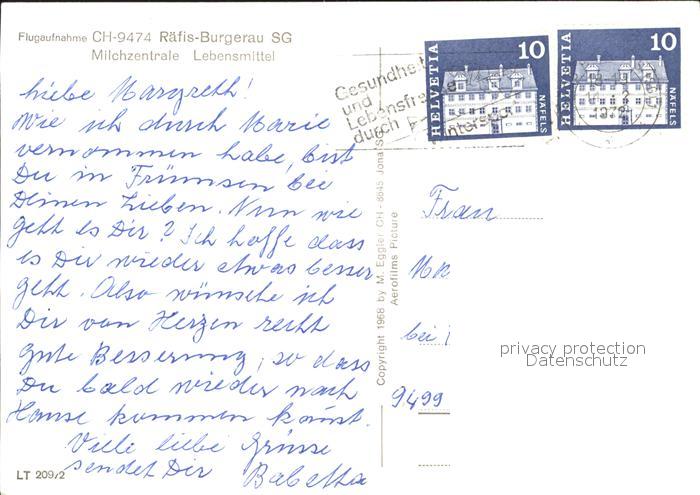 Flugaufnahme CH-9474 Räfis-Burgerau SG
Milchzentrale Lebensmittel
Liebe Margreth!
Wie ich durch Marie
vernommen habe, bist
Du in Frümsen bei
Deinen Lieben. Nun wie
geht es Dir? Ich hoffe dass
es Dir wieder etwas besser
geht. Also wünsche ich
Dir von Herzen recht
gute Besserung, so dass
Du bald wieder nach
Hause kommen kannst.
Viele liebe Grüsse
sendet Dir Babetta
LT 209/2
Copyright 1968 by M. Eggler CH - 8645 Jona
Aerofilms Picture
Gesundheit
und
Lebensfreude
durch
Wintersport
HELVETIA 10 NÄFELS
HELVETIA 10 NÄFELS
Frau
bei
9499
privacy protection
Datenschutz